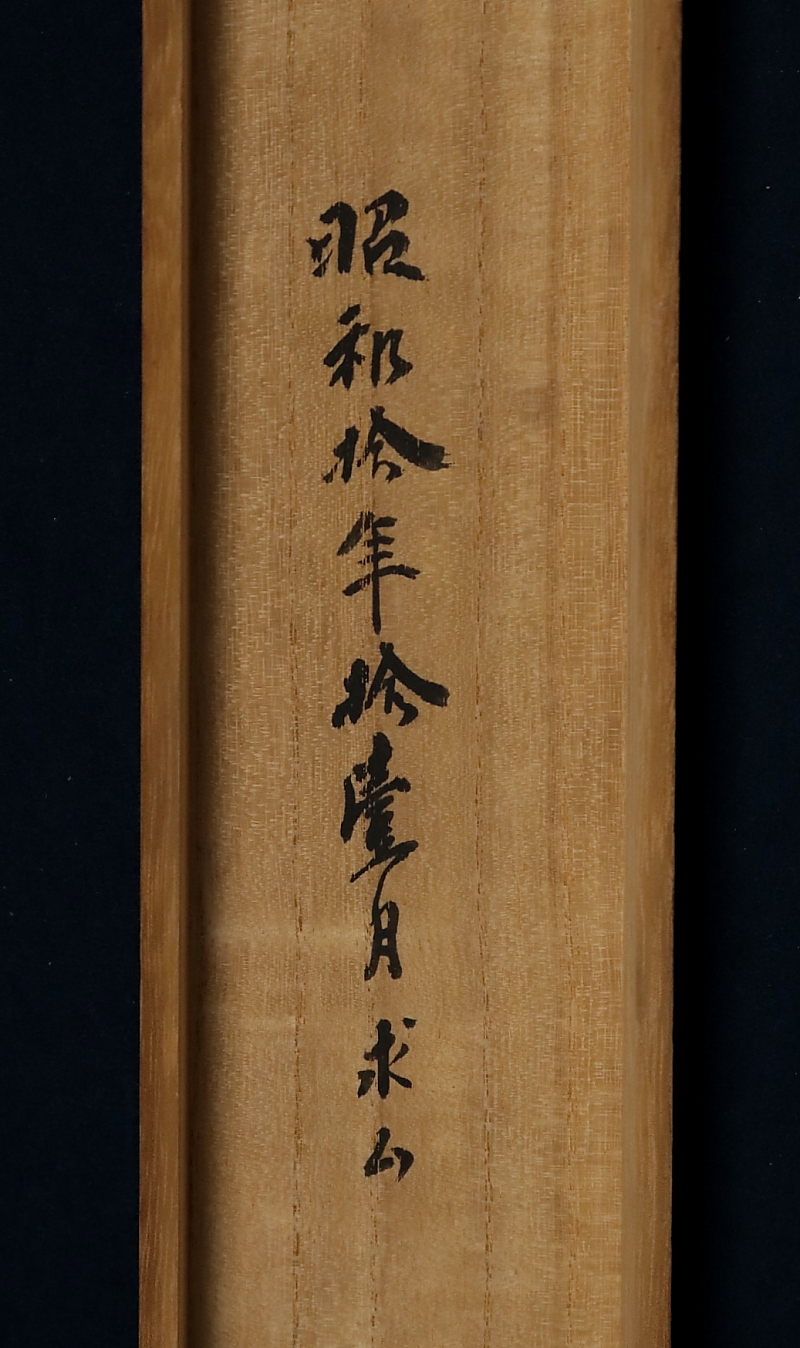 昭和拾年拾壹月 求山